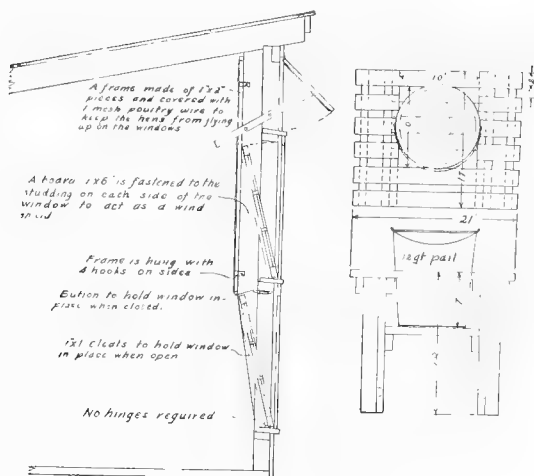 A frame made of 1"x2"
pieces and covered with
1 mesh poultry wire to
keep the hens from flying
up on the windows
A board 1x6" is fastened to the
studding on each side of the
window to act as a wind
Frame is hung with
4 hooks on sides
Button to hold window in
place when closed.
1"x1 cleats to hold window
in place when open
No hinges required
10'
21"
12 qt pail